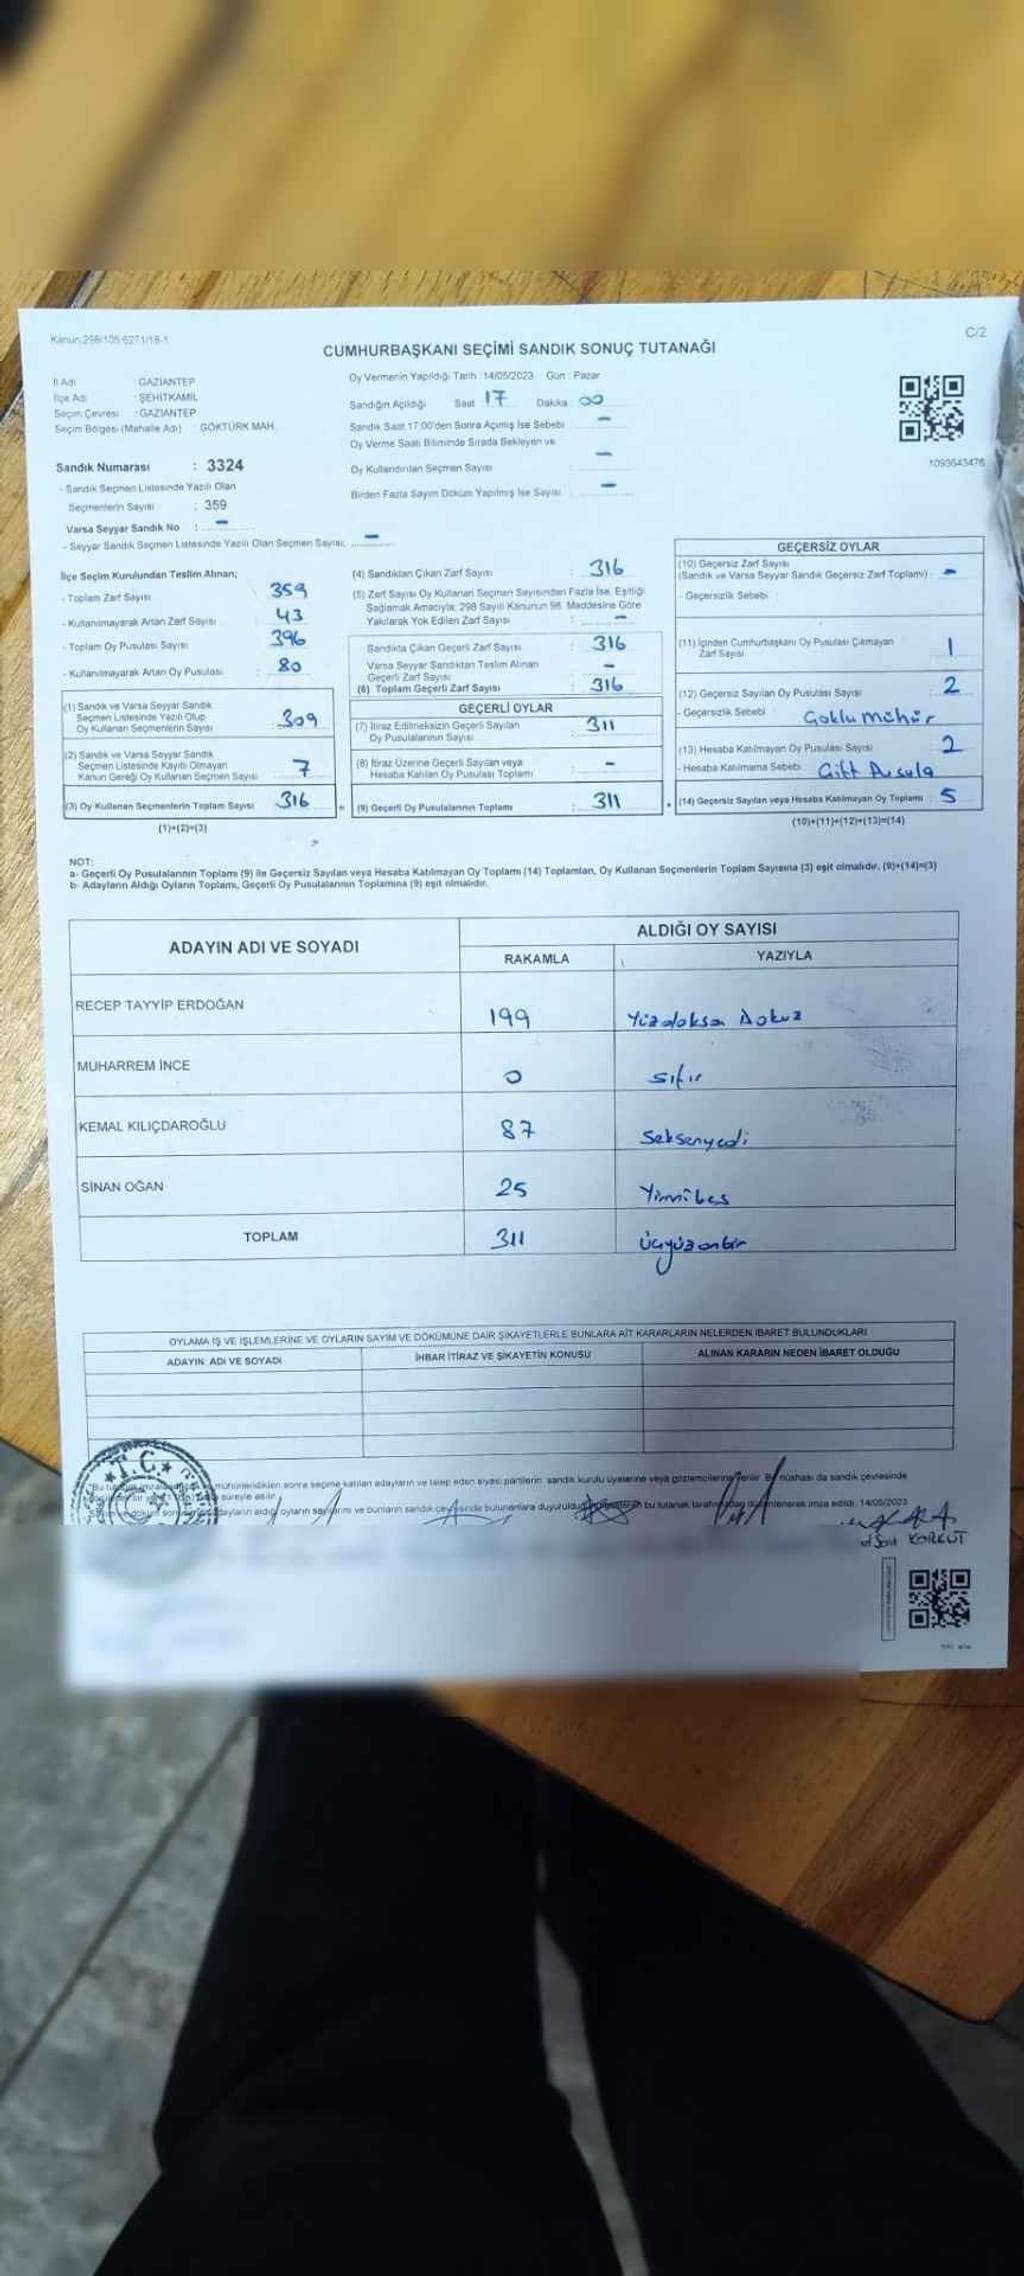 Kanun:298/105,6271/18-1
C/2
CUMHURBAŞKANI SEÇİMİ SANDIK SONUÇ TUTANAĞI
İl Adı : GAZİANTEP
İlçe Adı : ŞEHİTKAMİL
Seçim Çevresi : GAZİANTEP
Seçim Bölgesi (Mahalle Adı) GÖKTÜRK MAH.
Oy Vermenin Yapıldığı Tarih : 14/05/2023 Gün : Pazar
Sandığın Açıldığı Saat 17 Dakika : 00
Sandık Saat 17:00'den Sonra Açılmış İse Sebebi –
Oy Verme Saati Bitiminde Sırada Bekleyen ve
Oy Kullandırılan Seçmen Sayısı : –
Birden Fazla Sayım Döküm Yapılmış İse Sayısı : –
1093643476
Sandık Numarası : 3324
- Sandık Seçmen Listesinde Yazılı Olan
Seçmenlerin Sayısı : 359
Varsa Seyyar Sandık No : –
- Seyyar Sandık Seçmen Listesinde Yazılı Olan Seçmen Sayısı: –
İlçe Seçim Kurulundan Teslim Alınan;
- Toplam Zarf Sayısı : 359
- Kullanılmayarak Artan Zarf Sayısı : 43
- Toplam Oy Pusulası Sayısı : 396
- Kullanılmayarak Artan Oy Pusulası : 80
(1) Sandık ve Varsa Seyyar Sandık
Seçmen Listesinde Yazılı Olup
Oy Kullanan Seçmenlerin Sayısı : 309
(2) Sandık ve Varsa Seyyar Sandık
Seçmen Listesinde Kayıtlı Olmayan
Kanun Gereği Oy Kullanan Seçmen Sayısı : 7
(3) Oy Kullanan Seçmenlerin Toplam Sayısı : 316
(1)+(2)=(3)
(4) Sandıktan Çıkan Zarf Sayısı : 316
(5) Zarf Sayısı Oy Kullanan Seçmen Sayısından Fazla İse, Eşitliği
Sağlamak Amacıyla; 298 Sayılı Kanunun 98. Maddesine Göre
Yakılarak Yok Edilen Zarf Sayısı : –
Sandıkta Çıkan Geçerli Zarf Sayısı : 316
Varsa Seyyar Sandıktan Teslim Alınan
Geçerli Zarf Sayısı : –
(6) Toplam Geçerli Zarf Sayısı : 316
GEÇERLİ OYLAR
(7) İtiraz Edilmeksizin Geçerli Sayılan
Oy Pusulalarının Sayısı : 311
(8) İtiraz Üzerine Geçerli Sayılan veya
Hesaba Katılan Oy Pusulası Toplamı : –
= (9) Geçerli Oy Pusulalarının Toplamı : 311
GEÇERSİZ OYLAR
(10) Geçersiz Zarf Sayısı
(Sandık ve Varsa Seyyar Sandık Geçersiz Zarf Toplamı) : –
- Geçersizlik Sebebi :
(11) İçinden Cumhurbaşkanı Oy Pusulası Çıkmayan
Zarf Sayısı : 1
(12) Geçersiz Sayılan Oy Pusulası Sayısı : 2
- Geçersizlik Sebebi : Çoklu mühür
(13) Hesaba Katılmayan Oy Pusulası Sayısı : 2
- Hesaba Katılmama Sebebi : Çift Pusula
+ (14) Geçersiz Sayılan veya Hesaba Katılmayan Oy Toplamı : 5
(10)+(11)+(12)+(13)=(14)
NOT:
a- Geçerli Oy Pusulalarının Toplamı (9) ile Geçersiz Sayılan veya Hesaba Katılmayan Oy Toplamı (14) Toplamları, Oy Kullanan Seçmenlerin Toplam Sayısına (3) eşit olmalıdır. (9)+(14)=(3)
b- Adayların Aldığı Oyların Toplamı, Geçerli Oy Pusulalarının Toplamına (9) eşit olmalıdır.
ADAYIN ADI VE SOYADI
ALDIĞI OY SAYISI
RAKAMLA YAZIYLA
RECEP TAYYİP ERDOĞAN 199 Yüzdoksan Dokuz
MUHARREM İNCE 0 sıfır
KEMAL KILIÇDAROĞLU 87 Seksenyedi
SİNAN OĞAN 25 Yirmibeş
TOPLAM 311 Üçyüzonbir
OYLAMA İŞ VE İŞLEMLERİNE VE OYLARIN SAYIM VE DÖKÜMÜNE DAİR ŞİKAYETLERLE BUNLARA AİT KARARLARIN NELERDEN İBARET BULUNDUKLARI
ADAYIN ADI VE SOYADI İHBAR İTİRAZ VE ŞİKAYETİN KONUSU ALINAN KARARIN NEDEN İBARET OLDUĞU
T.C.
mühürlendikten sonra seçime katılan adayların ve talep eden siyasi partilerin sandık kurulu üyelerine veya gözlemcilerine verilir. Bir nüshası da sandık çevresinde
süreyle asılır.
adayların aldığı oyların sayılarını ve bunların sandık çevresinde bulunanlara duyurulduğunu bu tutanak tarafımızdan düzenlenerek imza edildi. 14/05/2023
KORKUT